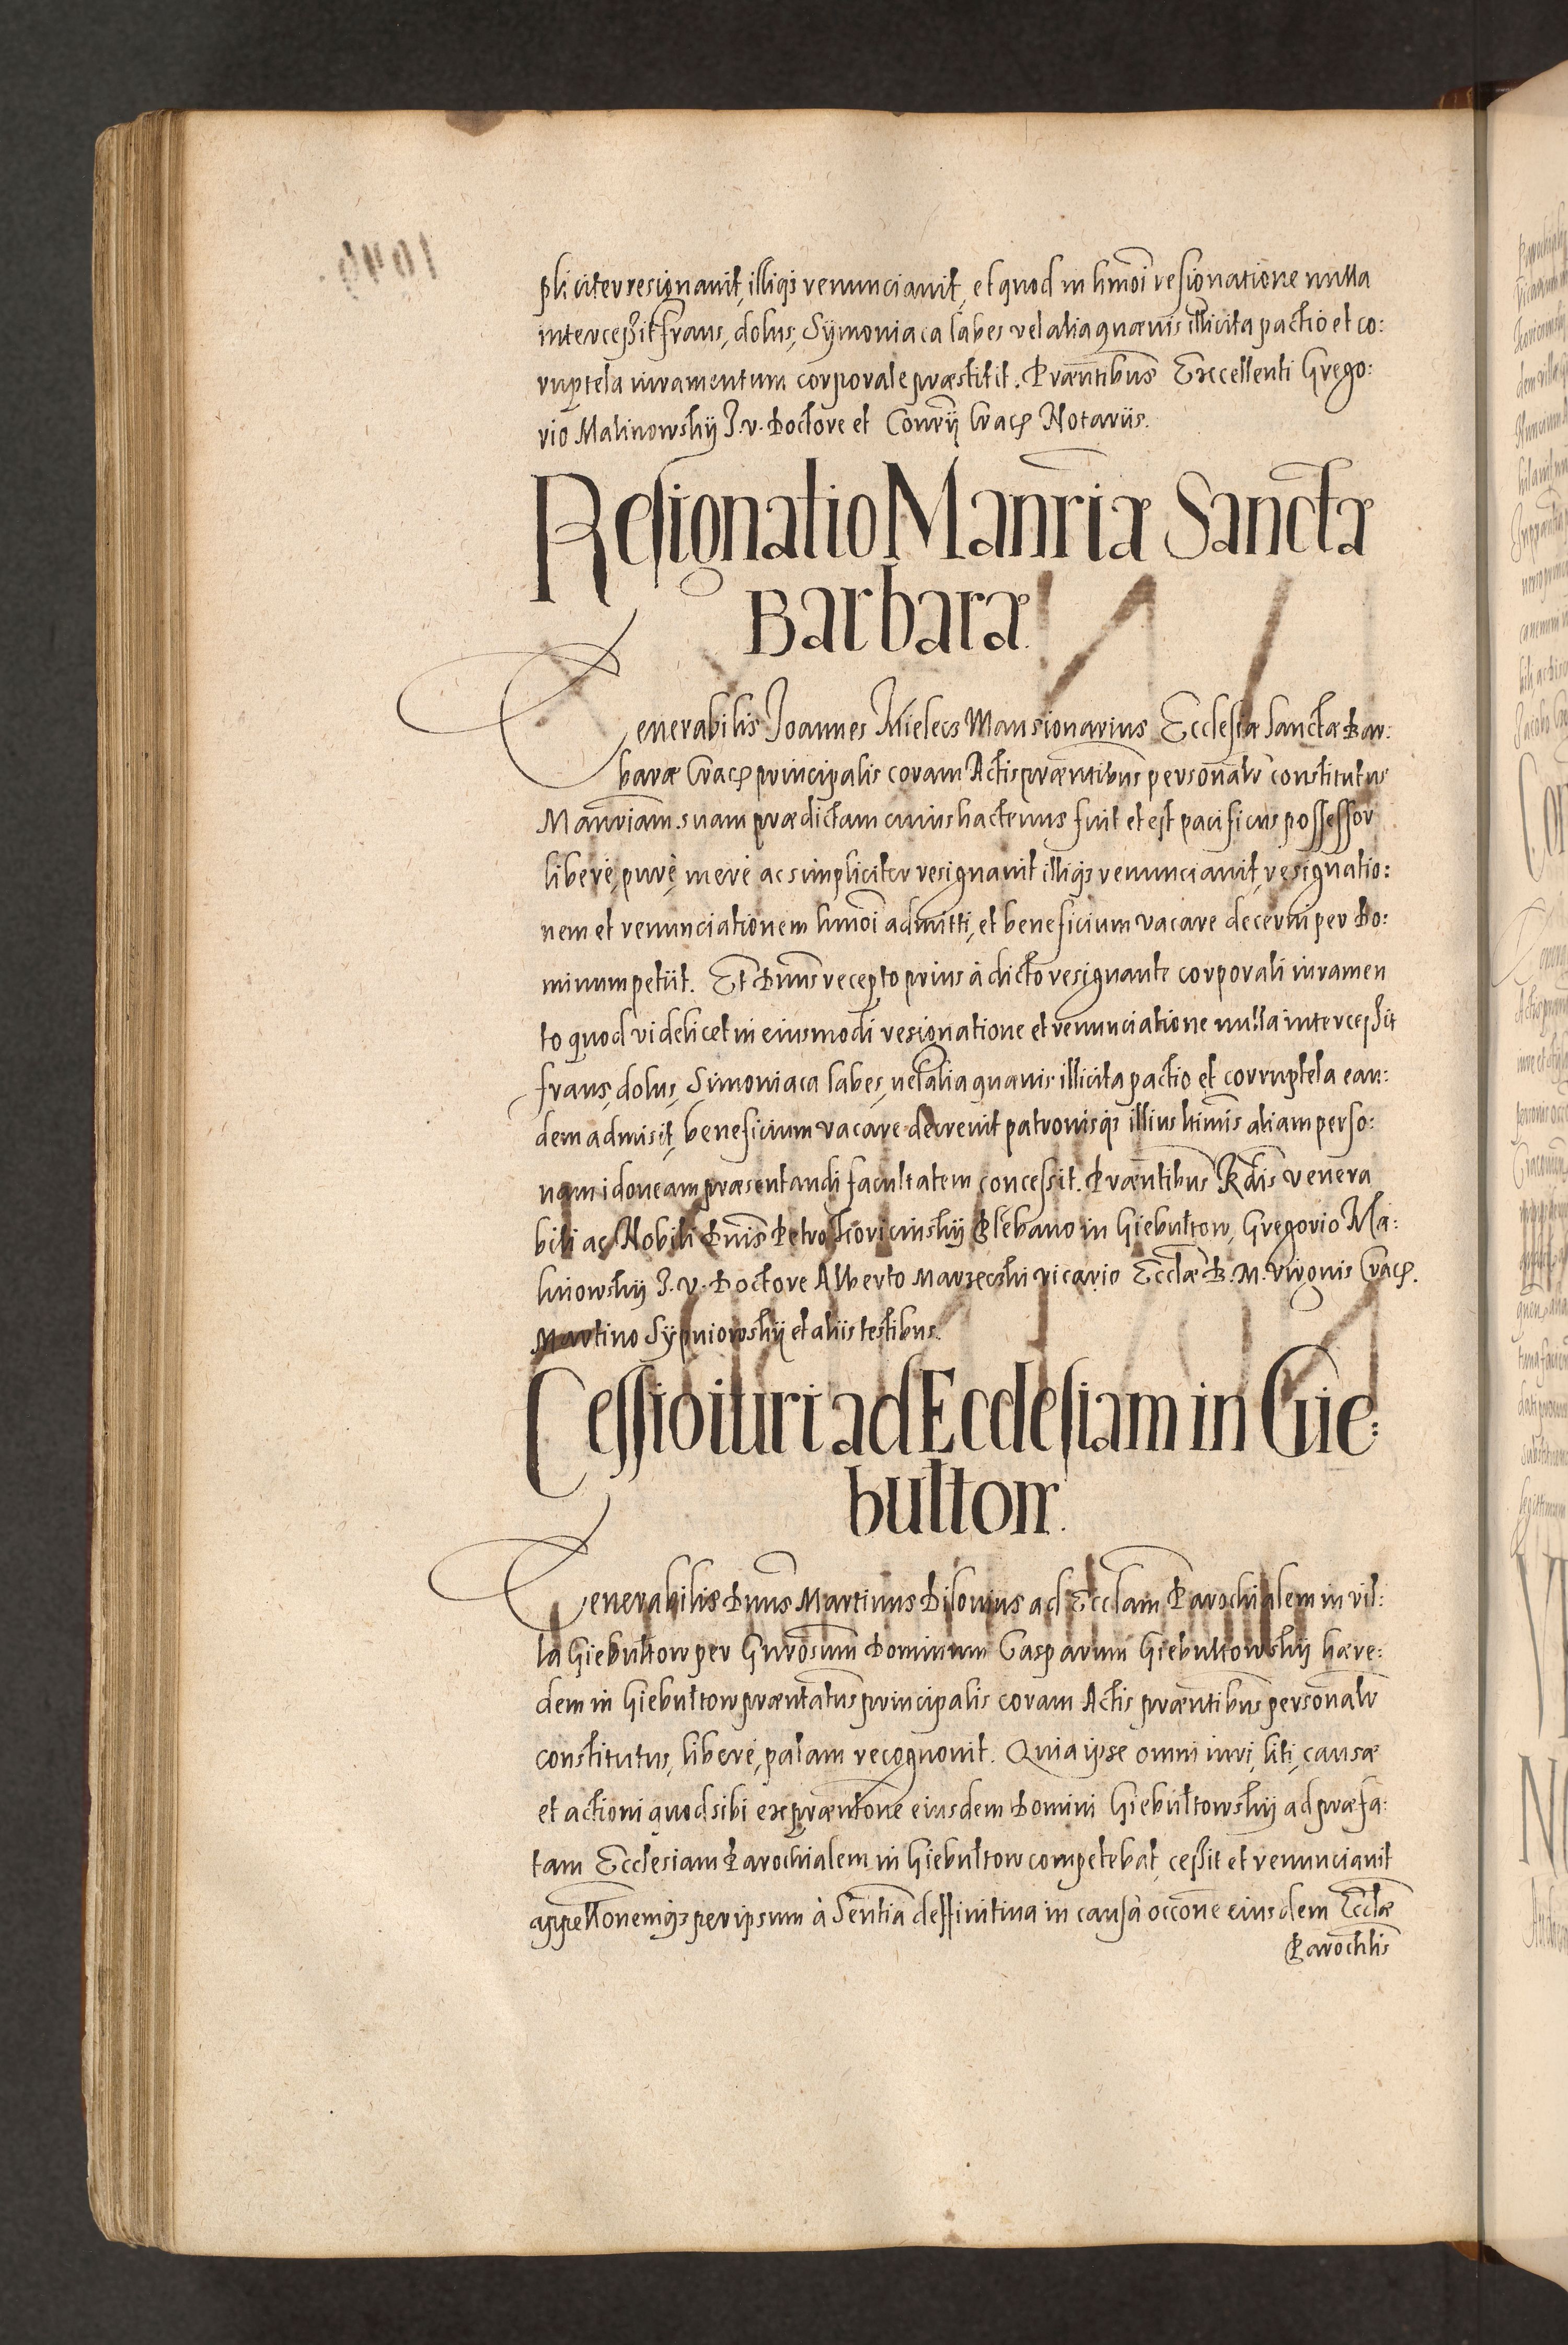 pliciter resignavit, illiqȝ renunciavit, et quod in hmōi resignatione nulla
intercessit fraus, dolus, Symoniaca labes vel alia quævis illicita pactio et co:
ruptela iuramentum corporale præstitit. Præntibus Excellenti Grego:
rio Malinowskÿ J. v. Doctore et Conrÿ Crac Notariis.
Resignatio Manriæ Sanctæ
Barbaræ.
Venerabilis Joannes Mielecs Mansionarius Ecclesiæ Sanctæ Bar:
baræ Crac principalis coram Actis præntibus personalr constitutus
Manriam suam prædictam cuius hactenus fuit et est pacificus possessor
liberè, purè, merè ac simpliciter resignavit illiqȝ renunciavit, resignatio:
nem et renunciationem hmōi admitti, et beneficium vacare decerni per Do:
minum petiit. Et Dnus recepto prius à dicto resignante corporali iuramen
to quod videlicet in eiusmodi resignatione et renunciatione nulla intercessit
fraus, dolus, Simoniaca labes, vel alia quævis illicita pactio et corruptela ean:
dem admisit, beneficium vacare decrevit patronisqȝ illius ltimis aliam perso:
nam idoneam præsentandi facultatem concessit. Præntibus Rdis venera
bili ac Nobili Dnis Petro Goricinskÿ Plebano in Giebultow, Gregorio Ma:
liniowskÿ J. v. Doctore Alberto Marzecski vicario Ecclæ B. M. Virginis Crac.
Martino Sÿpniowskÿ et aliis testibus.
Cessio ituri ad Ecclesiam in Gie:
bultow.
Venerabilis Dnus Martinus Disonius ad Ecclam Parochialem in vil:
la Giebultow per Gnrosum Dominum Casparum Giebultowskÿ hære:
dem in Giebultow præntatus principalis coram Actis præntibus personalr
constitutus, liberè, palam recognovit. Quia ipse omni iuri, liti, causæ
et actioni quod sibi ex præntone eiusdem Domini Giebultowskÿ ad præfa:
tam Ecclesiam Parochialem in Giebultow competebat, cessit et renunciavit
appellonemqȝ per ipsum à Sentia deffinitiva in causa occone eiusdem Ecclæ
Parochlis